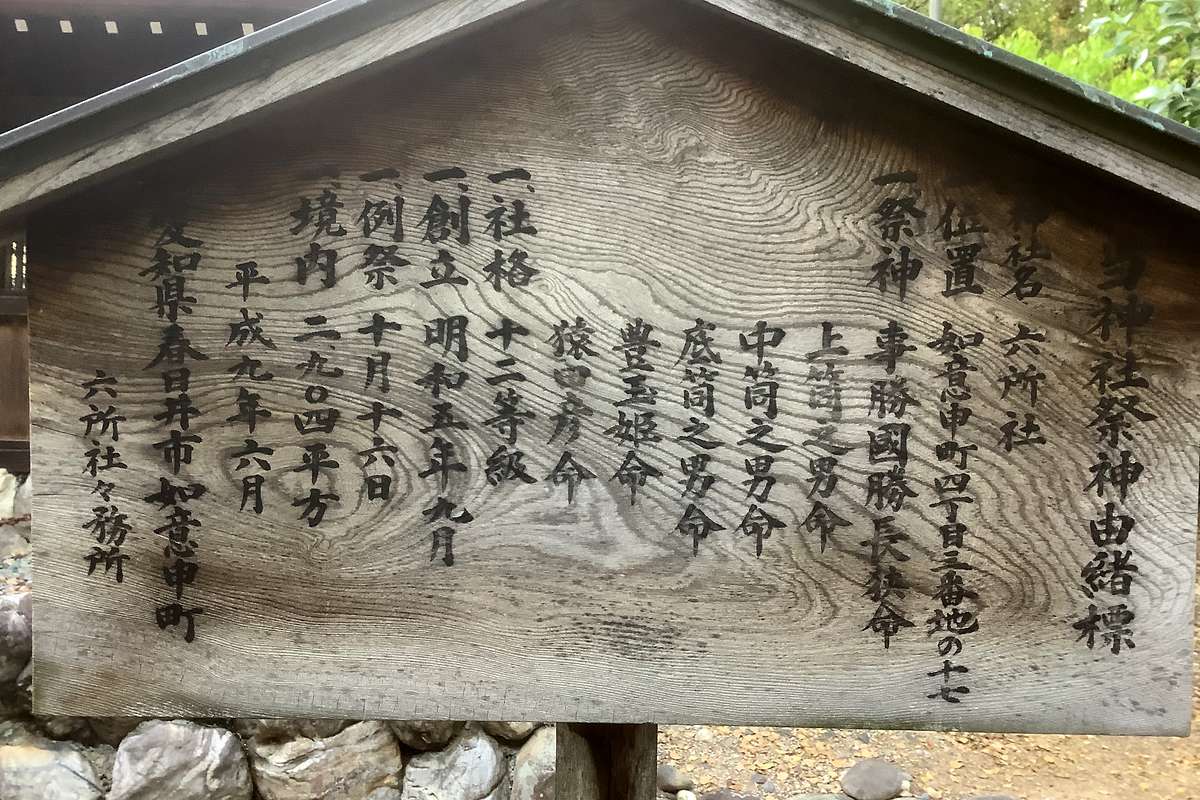 当神社祭神由緒標
一、神社名 六所社
一、位置 如意申町四丁目三番地の十七
一、祭神 事勝國勝長狭命
上筒之男命
中筒之男命
底筒之男命
豊玉姫命
猿田彦命
一、社格 十二等級
一、創立 明和五年九月
一、例祭 十月十六日
一、境内 二、九〇四平方
平成九年六月
愛知県春日井市如意申町
六所社々務所